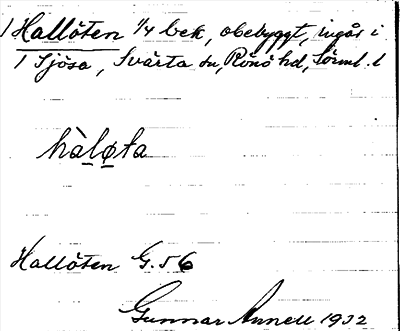 1 Hallöten 1/4 bek, obebyggt, ingår i
1 Sjösa, Svärta sn, Rönö hd, Sörml. l
hàløta
Hallöten G. 56
Gunnar Annell 1932